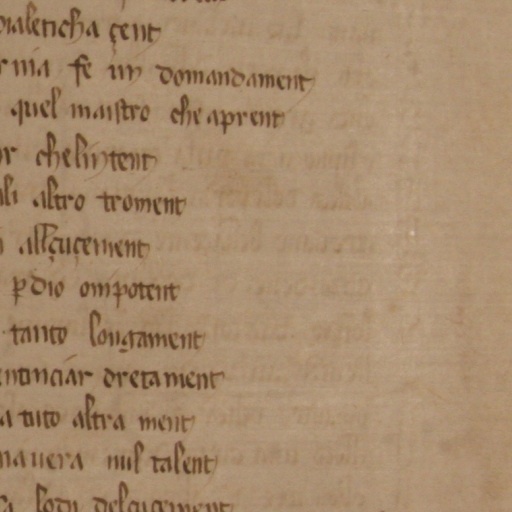 dialeticha çent
rnia fe un domandament
quel maistro che aprent
or che lintent
ali altro troment
al çuçement
p dio onipotent
tanto longament
entinciar dretament
a tuto altra ment
navera nul talent
lodi delçuçement